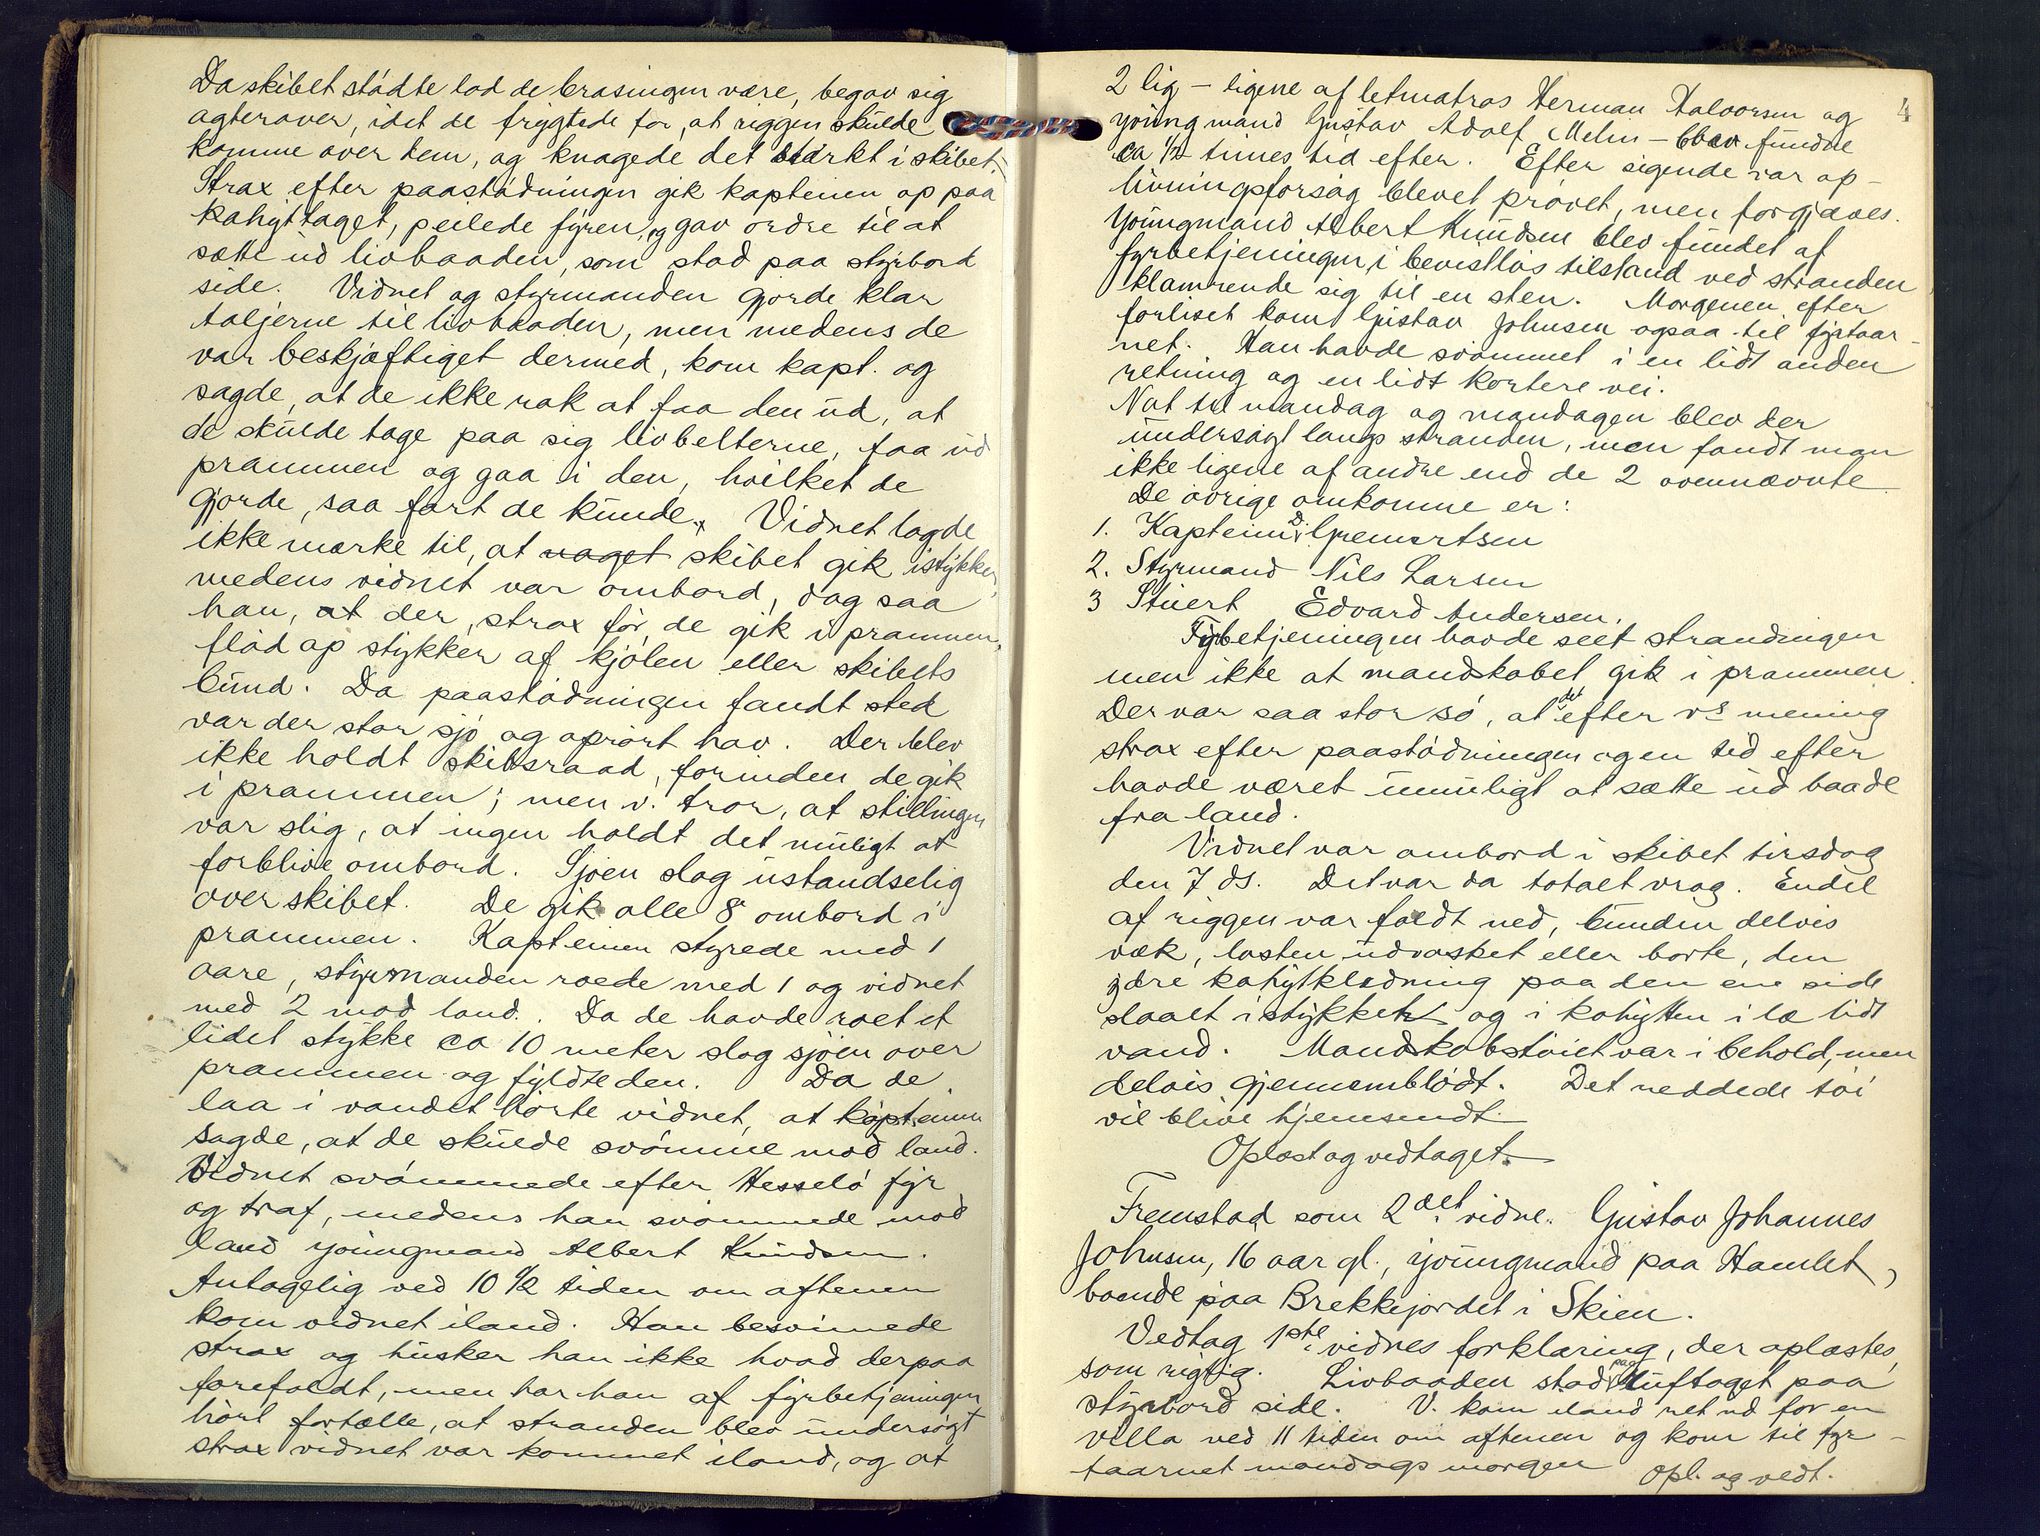 Da skibet stødte lod de brasingen være, begav sig
agterover, idet de frygtede for, at riggen skulde
komme over dem, og knagede det stærkt i skibet.
Strax efter paastødningen gik kapteinen op paa
kahyttaget, peilede fyren, og gav ordre til at
sætte ud livbaaden, som stod paa styrbord
side. Vidnet og styrmanden gjorde klar
taljerne til livbaaden, men medens de
var beskjæftiget dermed, kom kapt. og
sagde, at de ikke rak at faa den ud, at
de skulde tage paa sig livbelterne, faa ud
prammen og gaa i den, hvilket de
gjorde, saa fort de kunde. Vidnet lagde
ikke mærke til, at noget skibet gik istykker,
medens vidnet var ombord, dog saa
han, at der, strax før de gik i prammen,
flød op stykker af kjølen eller skibets
bund. Da paastødningen fandt sted
var der stor sjø og oprørt hav. Der blev
ikke holdt skibsraad, forinden de gik
i prammen; men v. tror, at stillingen
var slig, at ingen holdt det muligt at
forblive ombord. Sjøen slog ustandselig
over skibet. De gik alle 8 ombord i
prammen. Kapteinen styrede med 1
aare, styrmanden roede med 1 og vidnet
med 2 mod land. Da de havde roet et
lidet stykke ca 10 meter slog sjøen over
prammen og fyldte den. Da de
laa i vandet hørte vidnet, at kapteinen
sagde, at de skulde svømme mod land.
Vidnet svømmede efter Hesselø fyr
og traf, medens han svømmede mod
land youngmand Albert Knudsen.
Antagelig ved 10 1/2 tiden om aftenen
kom vidnet iland. Han besvimede
strax og husker han ikke hvad derpaa
forefaldt, men har han af fyrbetjeningen
hørt fortælle, at stranden blev undersøgt
strax vidnet var kommet iland, og at
4
2 lig – ligene af letmatros Herman Halvorsen og
youngmand Gustav Adolf Melm – blev fundne
ca 1/2 times tid efter. Efter sigende var op-
livningsforsøg blevet prøvet, men forgjæves.
Youngmand Albert Knudsen blev fundet af
fyrbetjeningen i bevistløs tilstand ved stranden,
klamrende sig til en sten. Morgenen efter
forliset kom Gustav Johnsen ogsaa til fyrtaar-
net. Han havde svømmet i en lidt anden
retning og en lidt kortere vei.
Nat til mandag og mandagen blev der
undersøgt langs stranden, men fandt man
ikke ligene af andre end de 2 ovennævnte.
De øvrige omkomne er:
1. Kaptein D. Gremertsen
2. Styrmand Nils Larsen
3 Stuert Edvard Andersen.
Fyrbetjeningen havde seet strandingen
men ikke at mandskabet gik i prammen.
Der var saa stor sø, at det efter v's mening
strax efter paastødningen og en tid efter
havde været umuligt at sætte ud baade
fra land.
Vidnet var ombord i skibet tirsdag
den 7 ds. Det var da totalt vrag. Endel
af riggen var faldt ned, bunden delvis
væk, lasten udvasket eller borte, den
ydre kahytklædning paa den ene side
slaaet istykker og i kahytten i læ lidt
vand. Mandskabstøiet var i behold, men
delvis gjennemblødt. Det reddede tøi
vil blive hjemsendt.
Oplæst og vedtaget.
Fremstod som 2det vidne. Gustav Johannes
Johnsen, 16 aar gl., youngmand paa Hamlet,
boende paa Brekkejordet i Skien.
Vedtog 1ste vidnes forklaring, der oplæstes,
som rigtig. Livbaaden stod paa luftaget paa
styrbord side. V. kom iland ret ud for en
villa ved 11 tiden om aftenen og kom til fyr-
taarnet mandags morgen Opl. og vedt.